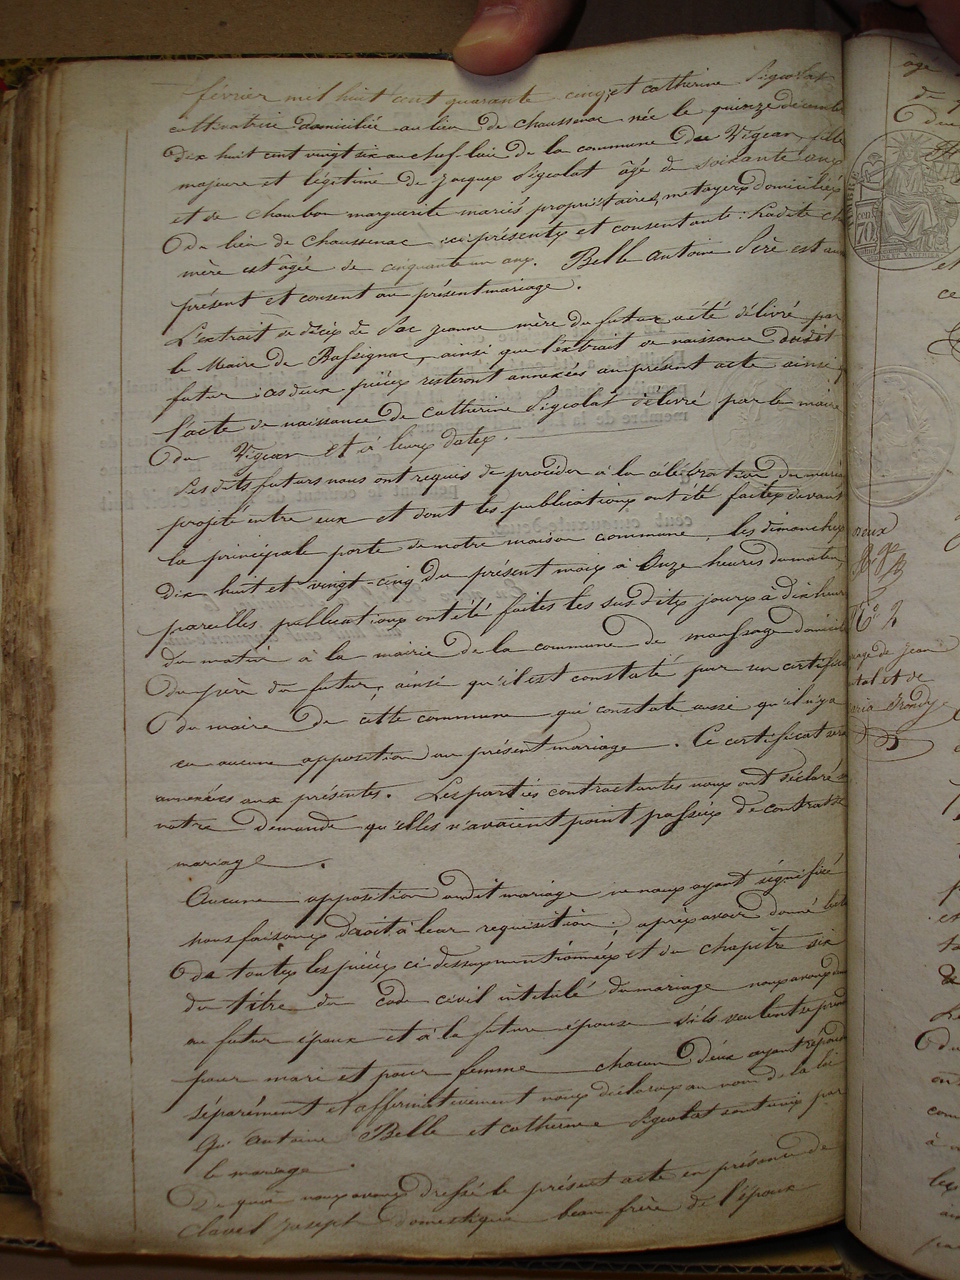 février mil huit cent quarante cinq, et catherine Sigeolat
cultivatrice domiciliée au lieu de chaussenac née le quinze décembre
dix huit cent vingt six au chef-lieu de la commune du Vigean, fille
majeure et légitime de Jacques Sigeolat âgé de soixante ans
et de chambon marguerite mariés propriétaires, metayers domiciliés
du lieu de chaussenac ici présents et consentants. Ladite
mère est âgée de cinquante un ans. Belle Antoine Père est aussi
présent et consent au présent mariage.
L'extrait de décès de Sac jeanne mère du futur a été délivré par
le Maire de Bassignac, ainsi que l'extrait de naissance dudit
futur ces deux pièces resteront annexées au présent acte ainsi q
l'acte de naissance de Catherine Sigeolat délivré par le maire
du Vigean et à leurs dates.
Les dits futurs nous ont requis de procéder à la célébration du maria
projeté entre eux et dont les publications ont été faites devant
la principale porte de notre maison commune, les dimanches
dix huit et vingt-cinq du présent mois à Onze heures du matin
pareilles publications ont été faites les sus dits jours à dix heures
du matin à la mairie de la commune de domicile
du père du futur, ainsi qu'il est constaté par un certificat
du maire de cette commune qui constate aussi qu'il n'y a
eu aucune opposition au présent mariage. Ce certificat sera
annexées aux présentes. Les parties contractantes nous ont déclaré
notre demande qu'elles n'avaient point passées de contrat de
mariage.
Aucune opposition audit mariage ne nous ayant signifiée
nous faisons droit à leur requisition; après avoir donné lect
de toutes les pièces ci-dessus mentionnées et du chapitre six
du titre du code civil intitulé du mariage nous avons de
au futur époux et à la future épouse s'ils veulent se prendre
pour mari et pour femme chacun d'eux ayant répondu
séparément et affirmativement nous déclarons au nom de la loi
que Antoine Belle et catherine Sigeolat sont unis par
le mariage.
De quoi nous avons dressé le présent acte en présence de
Clavel Joseph domestique beau frère de l'époux